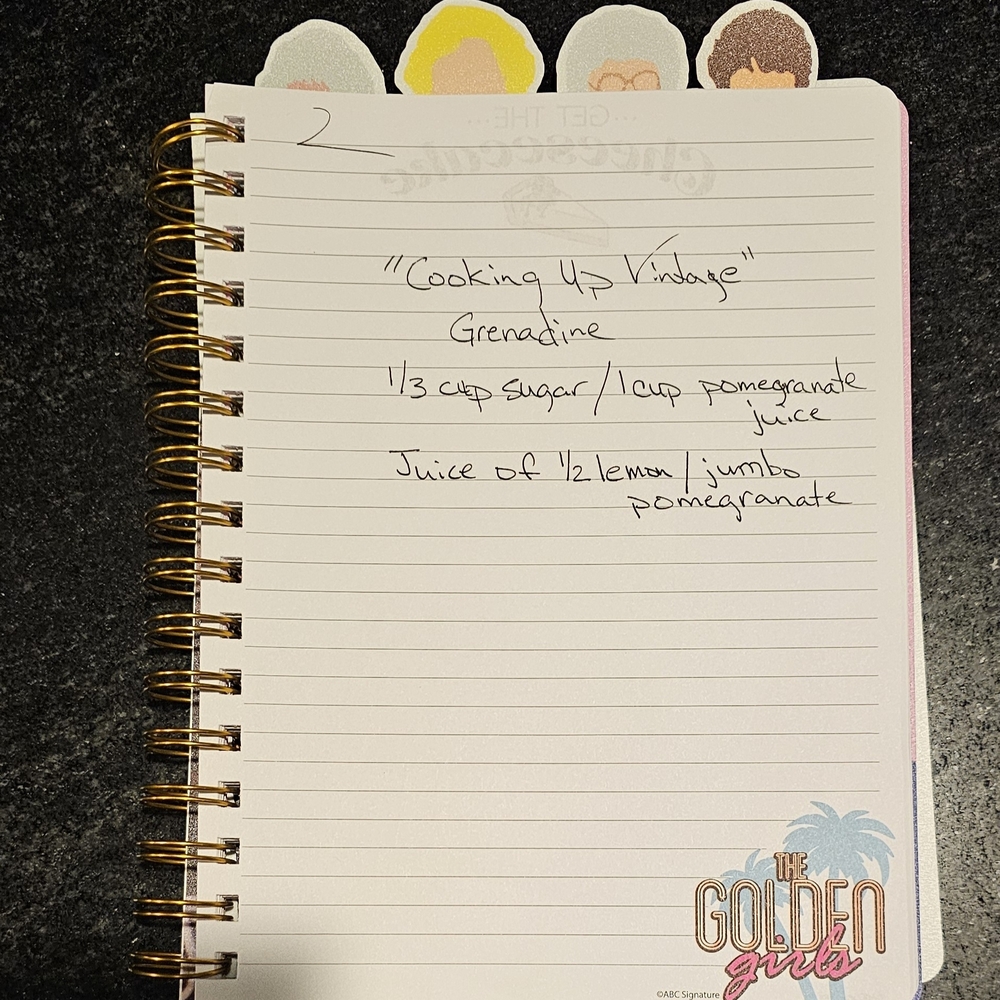 GET THE
Cheesecake
2
"Cooking Up Vintage"
Grenadine
1/3 cup sugar / 1 cup pomegranate
juice
Juice of 1/2 lemon / jumbo
pomegranate
THE
GOLDEN
girls
©ABC Signature